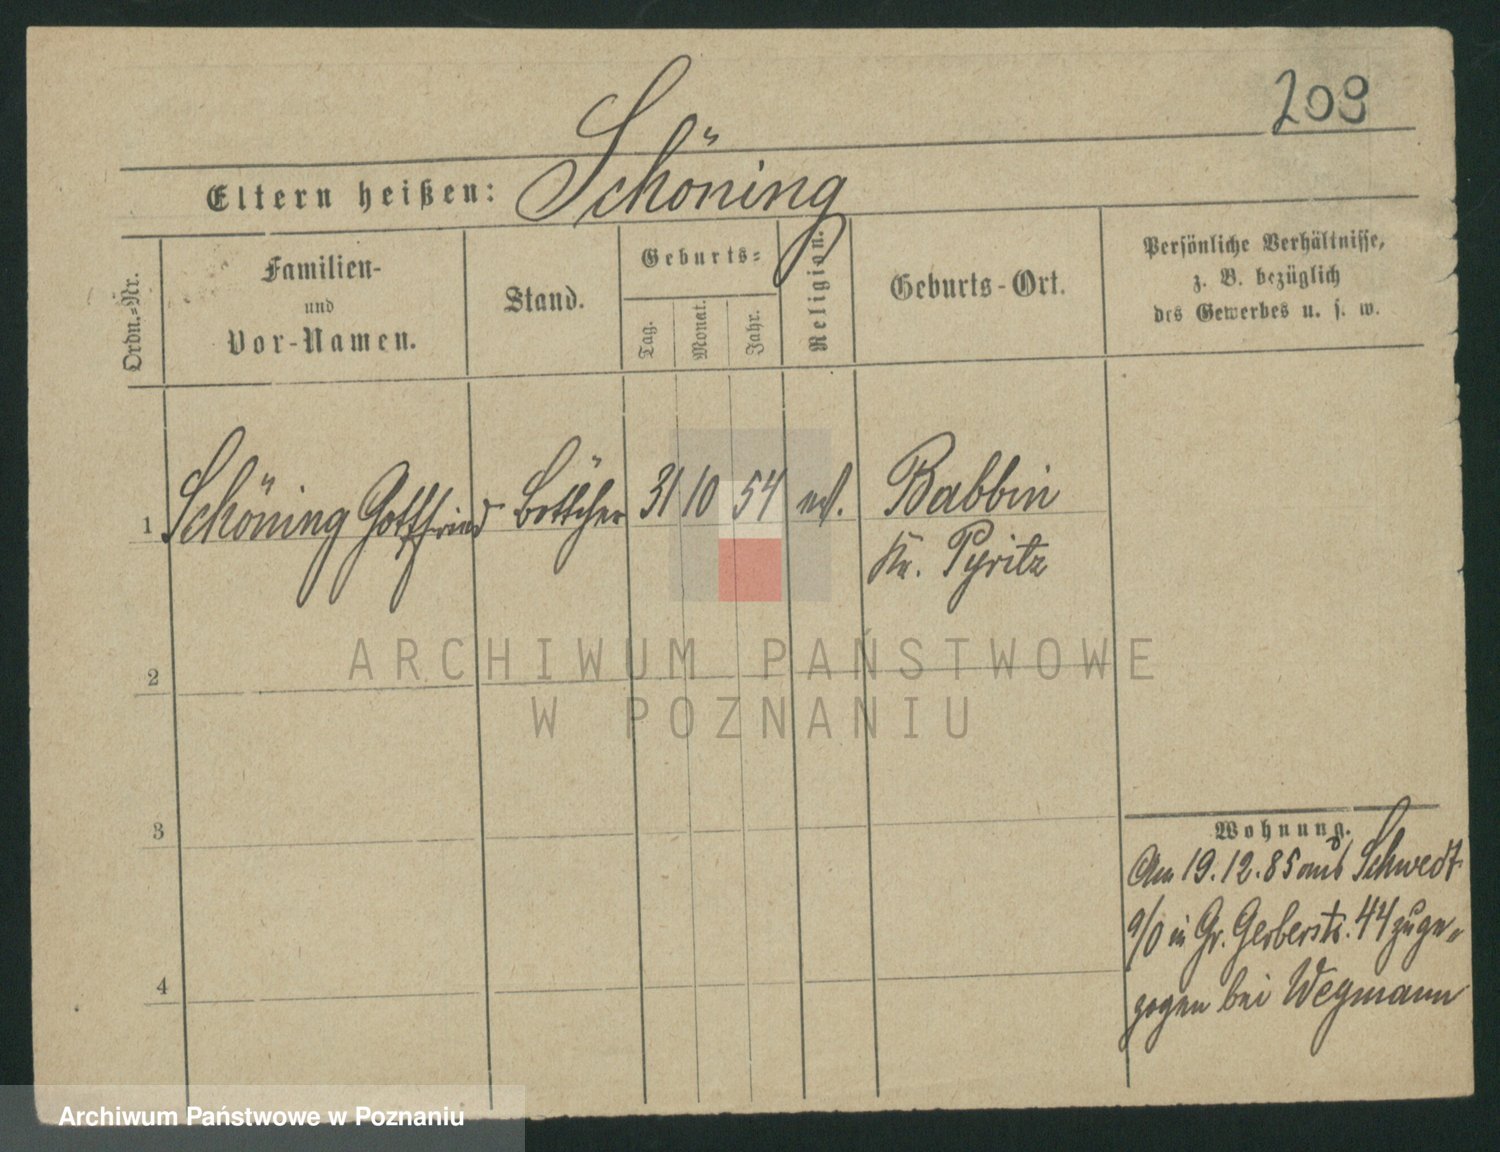 209
Eltern heißen: Schöning
Ordn.-Nr.
Familien-
und
Vor-Namen.
Stand.
Geburts-
Tag.
Monat.
Jahr.
Religion.
Geburts-Ort.
Persönliche Verhältnisse,
z. B. bezüglich
des Gewerbes u. s. w.
1 Schöning Gottfried Böttcher 31 10 54 Babbin
Kr. Pyritz
2
3
4
Wohnung.
Am 19.12.85 aus Schwedt
a/O in Gr. Gerberstr. 44 zuge-
zogen bei Wegmann
ARCHIWUM PAŃSTWOWE
W POZNANIU
Archiwum Państwowe w Poznaniu